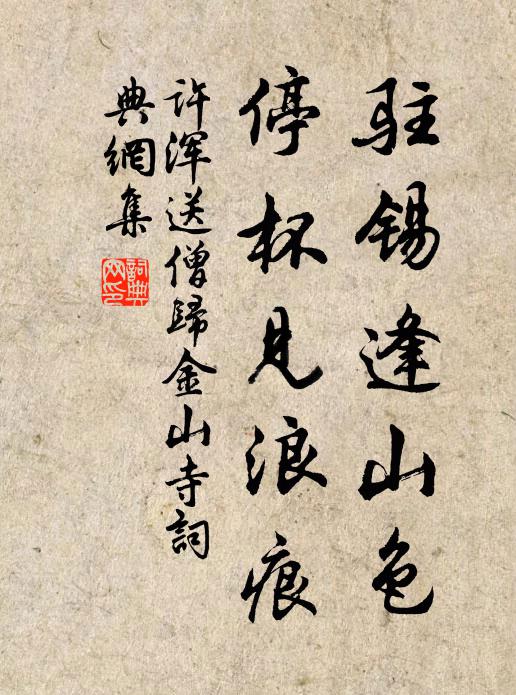 驻锡逢山色
停杯见浪痕
许浑送僧歸金山寺詞
典網集
詞典网印